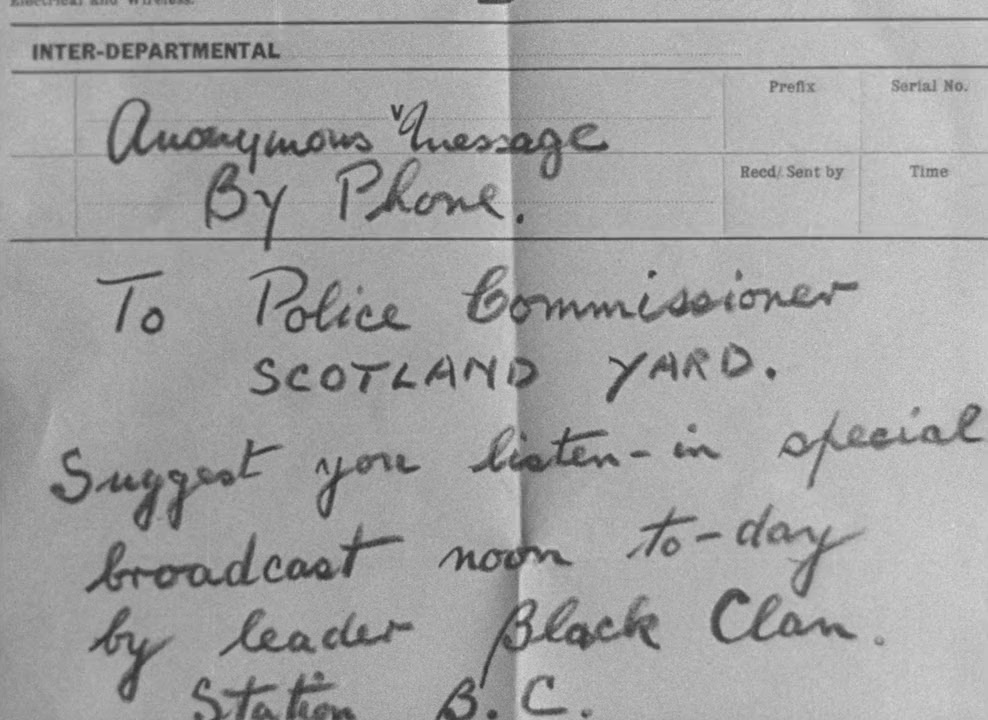 Electrical and Wireless.
INTER-DEPARTMENTAL
Prefix
Serial No.
Anonymous message
By Phone.
Recd/Sent by
Time
To Police Commissioner
SCOTLAND YARD.
Suggest you listen-in special
broadcast noon to-day
by leader Black Clan.
Station B.C.